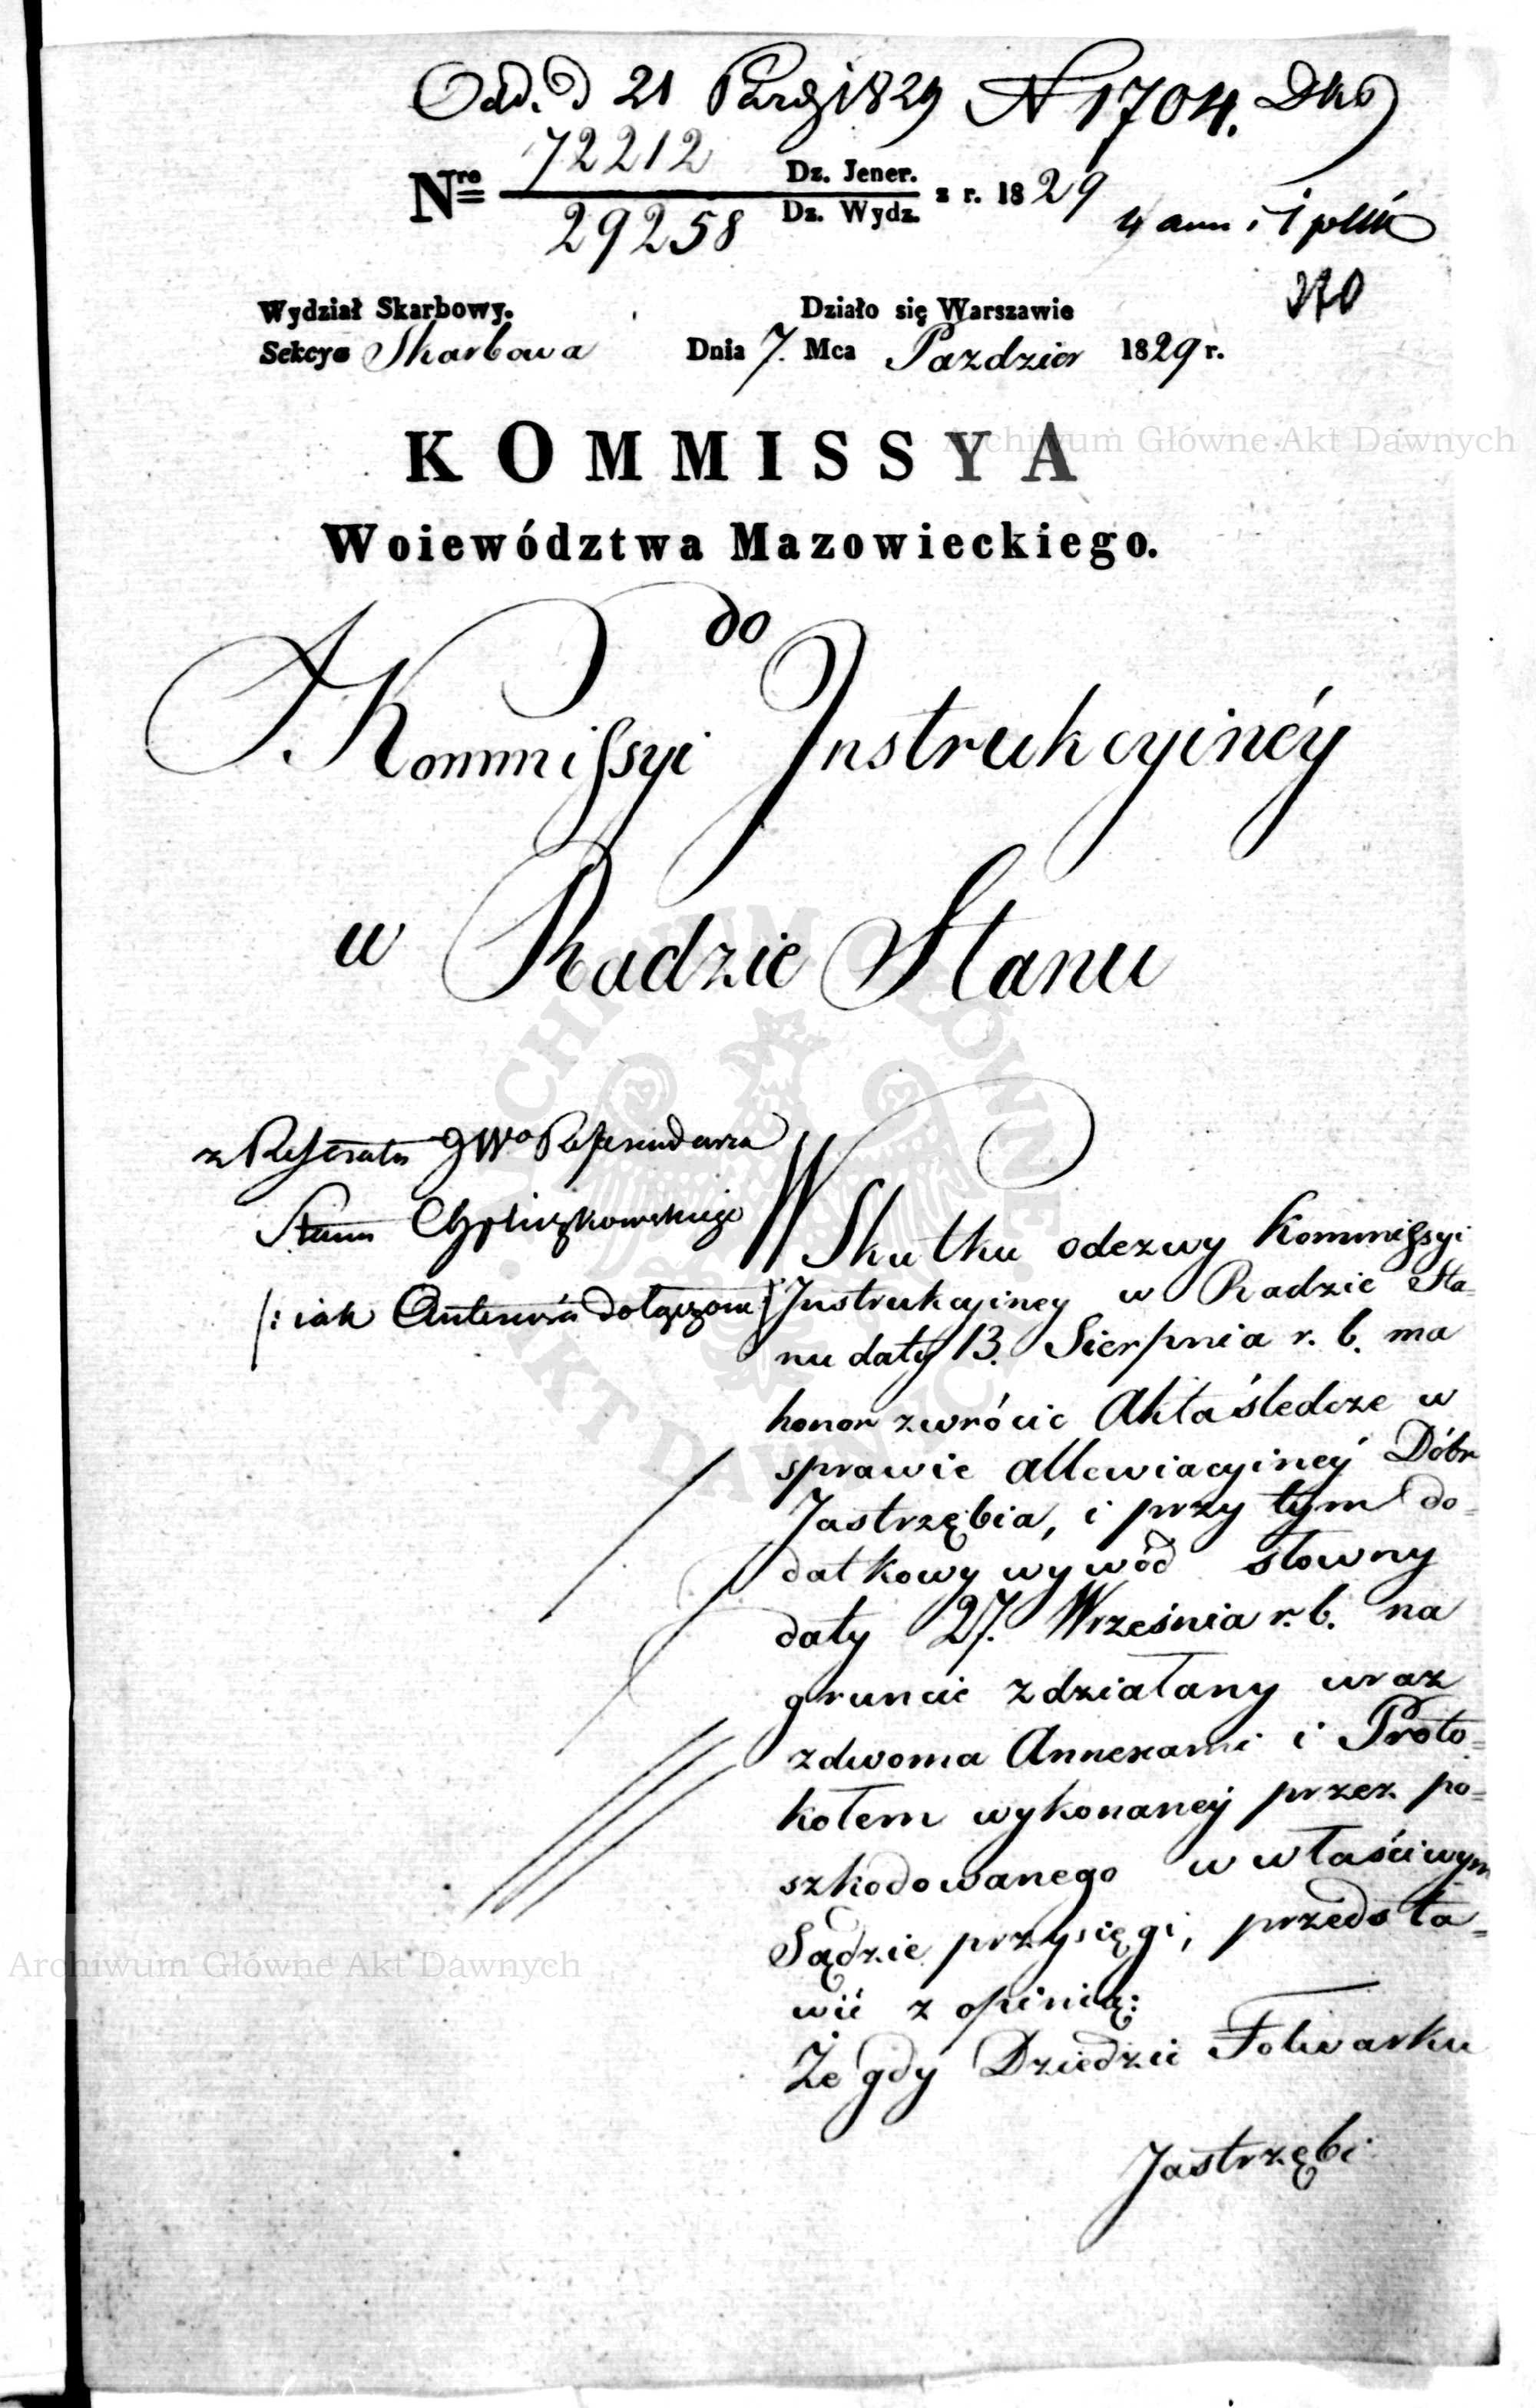 Odd. d 21 Paźdz 1829 N 1704. Dks
Nro 72212 Dz. Jener. z r. 1829
29258 Dz. Wydz.
4 ann i 1 plik
270
Wydział Skarbowy. Działo się Warszawie
Sekcya Skarbowa Dnia 7. Mca Pazdzier 1829 r.
KOMMISSYA
Archiwum Główne Akt Dawnych
Woiewództwa Mazowieckiego.
do
Kommissyi Instrukcyinéy
w Radzie Stanu
z Referatu JWo Referendarza
Stanu
/: iak Anteriora dołączone :/
W Skutku odezwy Kommissyi
Instrukcyiney w Radzie Sta=
nu daty 13. Sierpnia r. b. ma
honor zwrócic Akta śledcze w
sprawie allewiacyinéy Dóbr
Jastrzębia, i przy tym do=
datkowy wywód słowny
daty 27. Września r. b. na
gruncie zdziałany wraz
zdwoma Annexami i Proto=
kołem wykonanéy przez po=
szkodowanego w właściwym
Sądzie przysięgi, przedsta=
wić z opinią:
Że gdy Dziedzic Folwarku
Jastrzębi
Archiwum Główne Akt Dawnych
ARCHIWUM GŁÓWNE AKT DAWNYCH